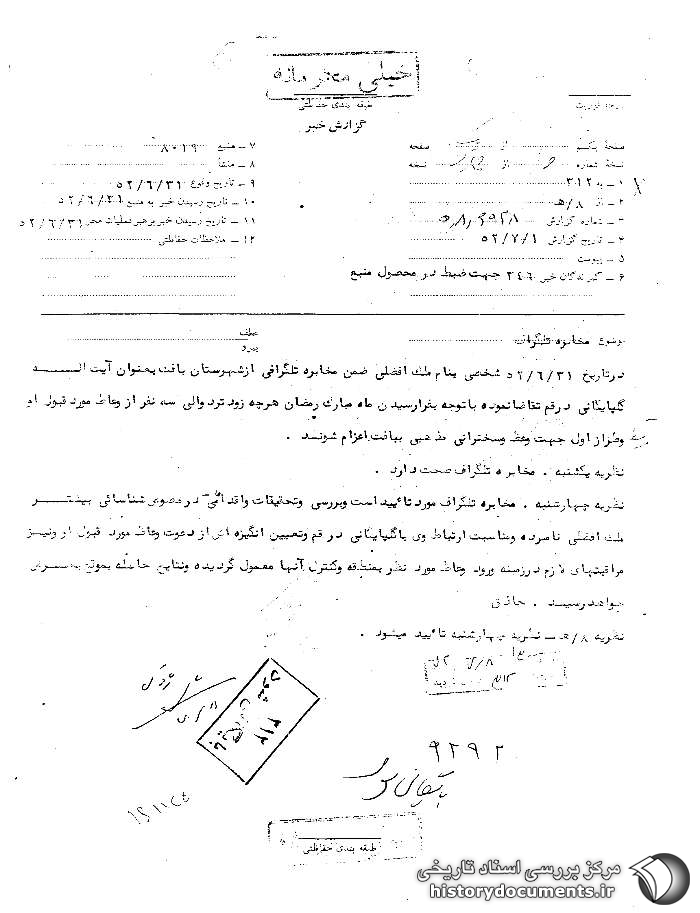 خیلی محرمانه
طبقه بندی حفاظتی
گزارش خبر
درجه فوریت
صفحه یکم از صفحه
نسخه شماره از نسخه
۱ - به ۳۱۲
۲ - از ۸/هـ
۳ - شماره گزارش
۴ - تاریخ گزارش ۵۲/۷/۱
۵ - پیوست
۶ - گیرندگان خبر ۳۴۶ جهت ضبط در محصول منبع
۷ - منبع ۸۰۱۹
۸ - منشأ
۹ - تاریخ وقوع ۵۲/۶/۳۱
۱۰ - تاریخ رسیدن خبر به منبع ۵۲/۶/۳۱
۱۱ - تاریخ رسیدن خبر برهبر عملیات محل ۵۲/۶/۳۱
۱۲ - ملاحظات حفاظتی
موضوع مخابره تلگراف
عطف
پیرو
در تاریخ ۵۲/۶/۳۱ شخصی بنام ملک افضلی ضمن مخابره تلگرافی از شهرستان بافت بعنوان آیت الله
گلپایگانی در قم تقاضا نموده با توجه بفرارسیدن ماه مبارک رمضان هرچه زودتر دو الی سه نفر از وعاظ مورد قبول او
وطراز اول جهت وعظ وسخنرانی مذهبی ببافت اعزام شوند .
نظریه یکشنبه . مخابره تلگراف صحت دارد .
نظریه چهارشنبه . مخابره تلگراف مورد تائید است وبررسی وتحقیقات واقداماتی در مورد شناسائی بیشتر
ملک افضلی نامبرده ومناسبت ارتباط وی باگلپایگانی در قم وتعیین انگیزه اش از دعوت وعاظ مورد قبول او ونیز
مراقبتهای لازم در زمینه ورود وعاظ مورد نظر بمنطقه وکنترل آنها معمول گردیده ونتایج حاصله بموقع بعرض
خواهد رسید . حاذق
نظریه ۸/هـ - نظریه چهارشنبه تائید میشود .
بایگانی شود
۳۱۲
۹۲۹۲
بایگانی شود
طبقه بندی حفاظتی
مرکز بررسی اسناد تاریخی
historydocuments.ir